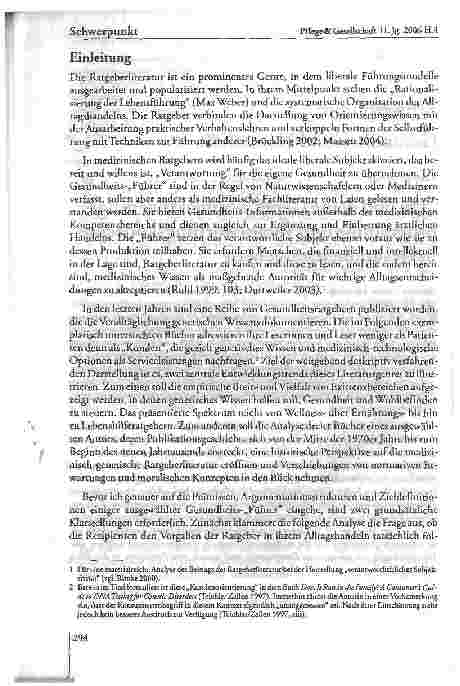 Schwerpunkt Pflege& Gesellschaft 11. Jg. 2006 H.4
Einleitung
Die Ratgeberliteratur ist ein prominentes Genre, in dem liberale Führungsmodelle
ausgearbeitet und popularisiert werden. In ihrem Mittelpunkt stehen die „Rationali-
sierung der Lebensführung“ (Max Weber) und die systematische Organisation des All-
tagshandelns. Die Ratgeber verbinden die Darstellung von Orientierungswissen mit
der Ausarbeitung praktischer Verhaltenslehren und verkoppeln Formen der Selbstfüh-
rung mit Techniken zur Führung anderer (Bröckling 2002; Maasen 2004).
In medizinischen Ratgebern wird häufig das ideale liberale Subjekt skizziert, das be-
reit und willens ist, „Verantwortung“ für die eigene Gesundheit zu übernehmen. Die
Gesundheits-„Führer“ sind in der Regel von Naturwissenschaftlern oder Medizinern
verfasst, sollen aber anders als medizinische Fachliteratur von Laien gelesen und ver-
standen werden. Sie bieten Gesundheits-Informationen außerhalb des medizinischen
Kompetenzbereichs und dienen zugleich zur Ergänzung und Einübung ärztlichen
Handelns. Die „Führer“ setzen das verantwortliche Subjekt ebenso voraus wie sie an
dessen Produktion teilhaben. Sie erfordern Menschen, die finanziell und intellektuell
in der Lage sind, Ratgeberliteratur zu kaufen und diese zu lesen, und die zudem bereit
sind, medizinisches Wissen als maßgebende Autorität für wichtige Alltagsentschei-
dungen zu akzeptieren (Ruhl 1999, 103; Duttweiler 2003).
In den letzten Jahren sind eine Reihe von Gesundheitsratgebern publiziert worden,
die die Veralltäglichung genetischen Wissens dokumentieren. Die im Folgenden exem-
plarisch untersuchten Bücher adressieren ihre Leserinnen und Leser weniger als Patien-
ten denn als „Kunden“, die gezielt genetisches Wissen und medizinisch-technologische
Optionen als Serviceleistungen nachfragen.² Ziel der weitgehend deskriptiv verfahren-
den Darstellung ist es, zwei zentrale Entwicklungstrends dieses Literaturgenres zu illus-
trieren. Zum einen soll die empirische Breite und Vielfalt von Existenzbereichen aufge-
zeigt werden, in denen genetisches Wissen helfen soll, Gesundheit und Wohlbefinden
zu steuern. Das präsentierte Spektrum reicht von Wellness- über Ernährungs- bis hin
zu Lebenshilferatgebern. Zum anderen soll die Analyse der Bücher eines ausgewähl-
ten Autors, deren Publikationsgeschichte sich von der Mitte der 1970er Jahre bis zum
Beginn des neuen Jahrtausends erstreckt, eine historische Perspektive auf die medizi-
nisch-genetische Ratgeberliteratur eröffnen und Verschiebungen von normativen Er-
wartungen und moralischen Konzepten in den Blick nehmen.
Bevor ich genauer auf die Prämissen, Argumentationsstrukturen und Zieldefinitio-
nen einiger ausgewählter Gesundheits-„Führer“ eingehe, sind zwei grundsätzliche
Klarstellungen erforderlich. Zunächst klammert die folgende Analyse die Frage aus, ob
die Rezipienten den Vorgaben der Ratgeber in ihrem Alltagshandeln tatsächlich fol-
1 Für eine materialreiche Analyse des Beitrags der Ratgeberliteratur bei der Herstellung „verantwortlicher Subjek-
tivität“ (vgl. Rimke 2000).
2 Bereits im Titel formuliert ist diese „Kundenorientierung“ in dem Buch Does It Run in the Family? A Consumer's Gui-
de to DNA Testing for Genetic Disorders (Teichler/Zallen 1997). Immerhin räumt die Autorin in einer Vorbemerkung
ein, dass der Konsumentenbegriff in diesem Kontext eigentlich „unangemessen“ sei. Nach ihrer Einschätzung stehe
jedoch kein besserer Ausdruck zur Verfügung (Teichler/Zallen 1997, xiii).
294